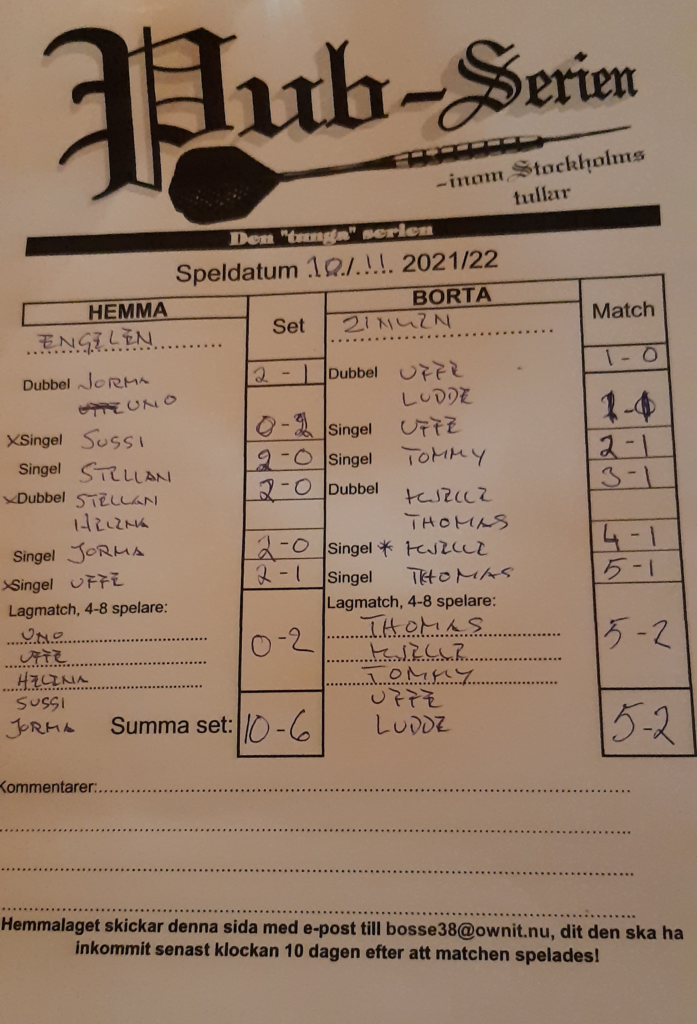 Pub-Serien
-inom Stockholms
tullar
Den "tunga" serien
Speldatum 10/11 2021/22
HEMMA Set BORTA Match
ENGELEN
Dubbel JORMA 2-1 Dubbel UFFE 1-0
UNO LUDDE
xSingel SUSSI 0-2 Singel UFFE 1-1
Singel STELLAN 2-0 Singel TOMMY 2-1
xDubbel STELLAN 2-0 Dubbel KJELLE 3-1
HELENA THOMAS
Singel JORMA 2-0 Singel * KJELLE 4-1
xSingel UFFE 2-1 Singel THOMAS 5-1
Lagmatch, 4-8 spelare: Lagmatch, 4-8 spelare:
UNO 0-2 THOMAS 5-2
UFFE KJELLE
HELENA TOMMY
SUSSI UFFE
JORMA Summa set: 10-6 LUDDE 5-2
Kommentarer:
Hemmalaget skickar denna sida med e-post till bosse38@ownit.nu, dit den ska ha
inkommit senast klockan 10 dagen efter att matchen spelades!